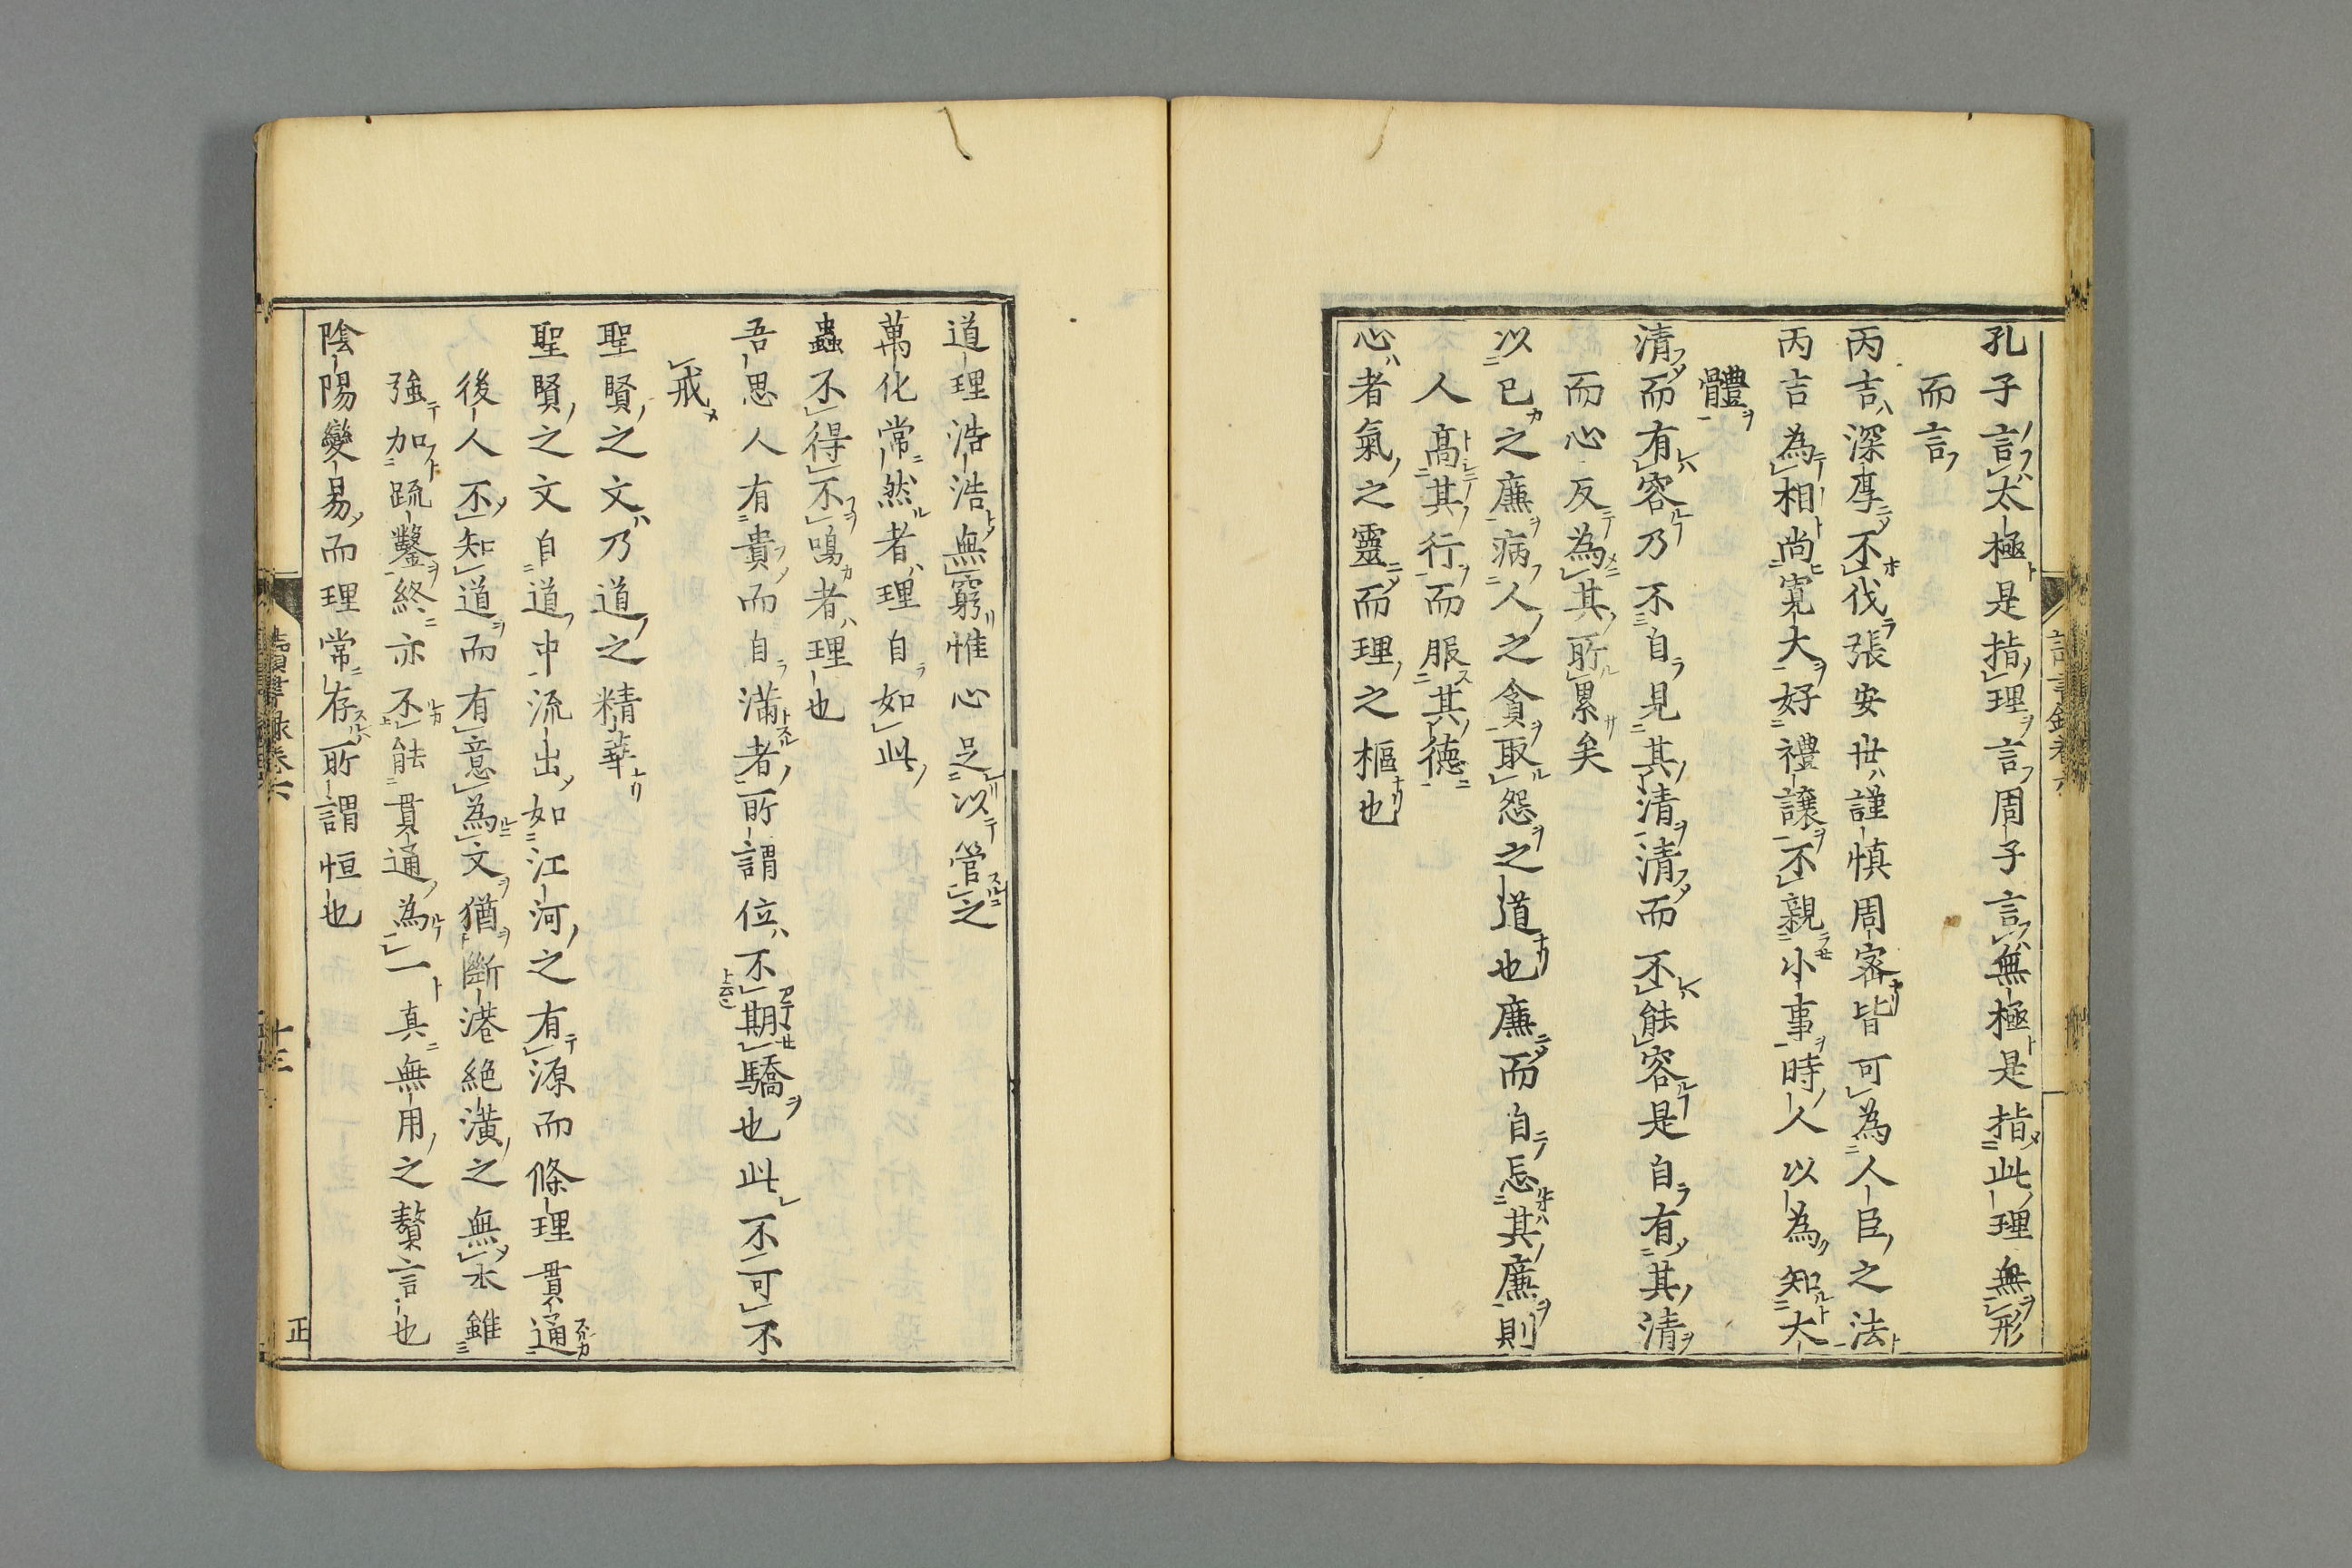 孔子言太極是指理言周子言無極是指此理無形
而言
丙吉深厚不伐張安世謹慎周宻皆可為人臣之法
丙吉為相尚寛大好禮讓不親小事時人以為知大
體
清而有容乃不自見其清清而不能容是自有其清
而心反為其所累矣
以己之廉病人之貪取怨之道也廉而自忘其廉則
人髙其行而服其德
心者氣之靈而理之樞也
道理浩浩無窮惟心足以管之
萬化常然者理自如此
蟲不得不鳴者理也
吾思人有貴而自滿者所謂位不期驕也此不可不
戒
聖賢之文乃道之精華
聖賢之文自道中流出如江河之有源而條理貫通
後人不知道而有意為文猶斷港絶潢之無水雖
強加疏鑿終亦不能貫通為一真無用之贅言也
陰陽變易而理常存所謂恒也
讀書録卷六
十三
正